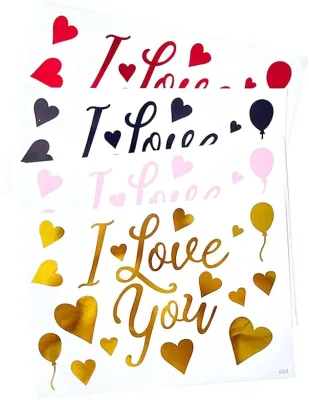 I Love
I Love
I Love
I Love
You